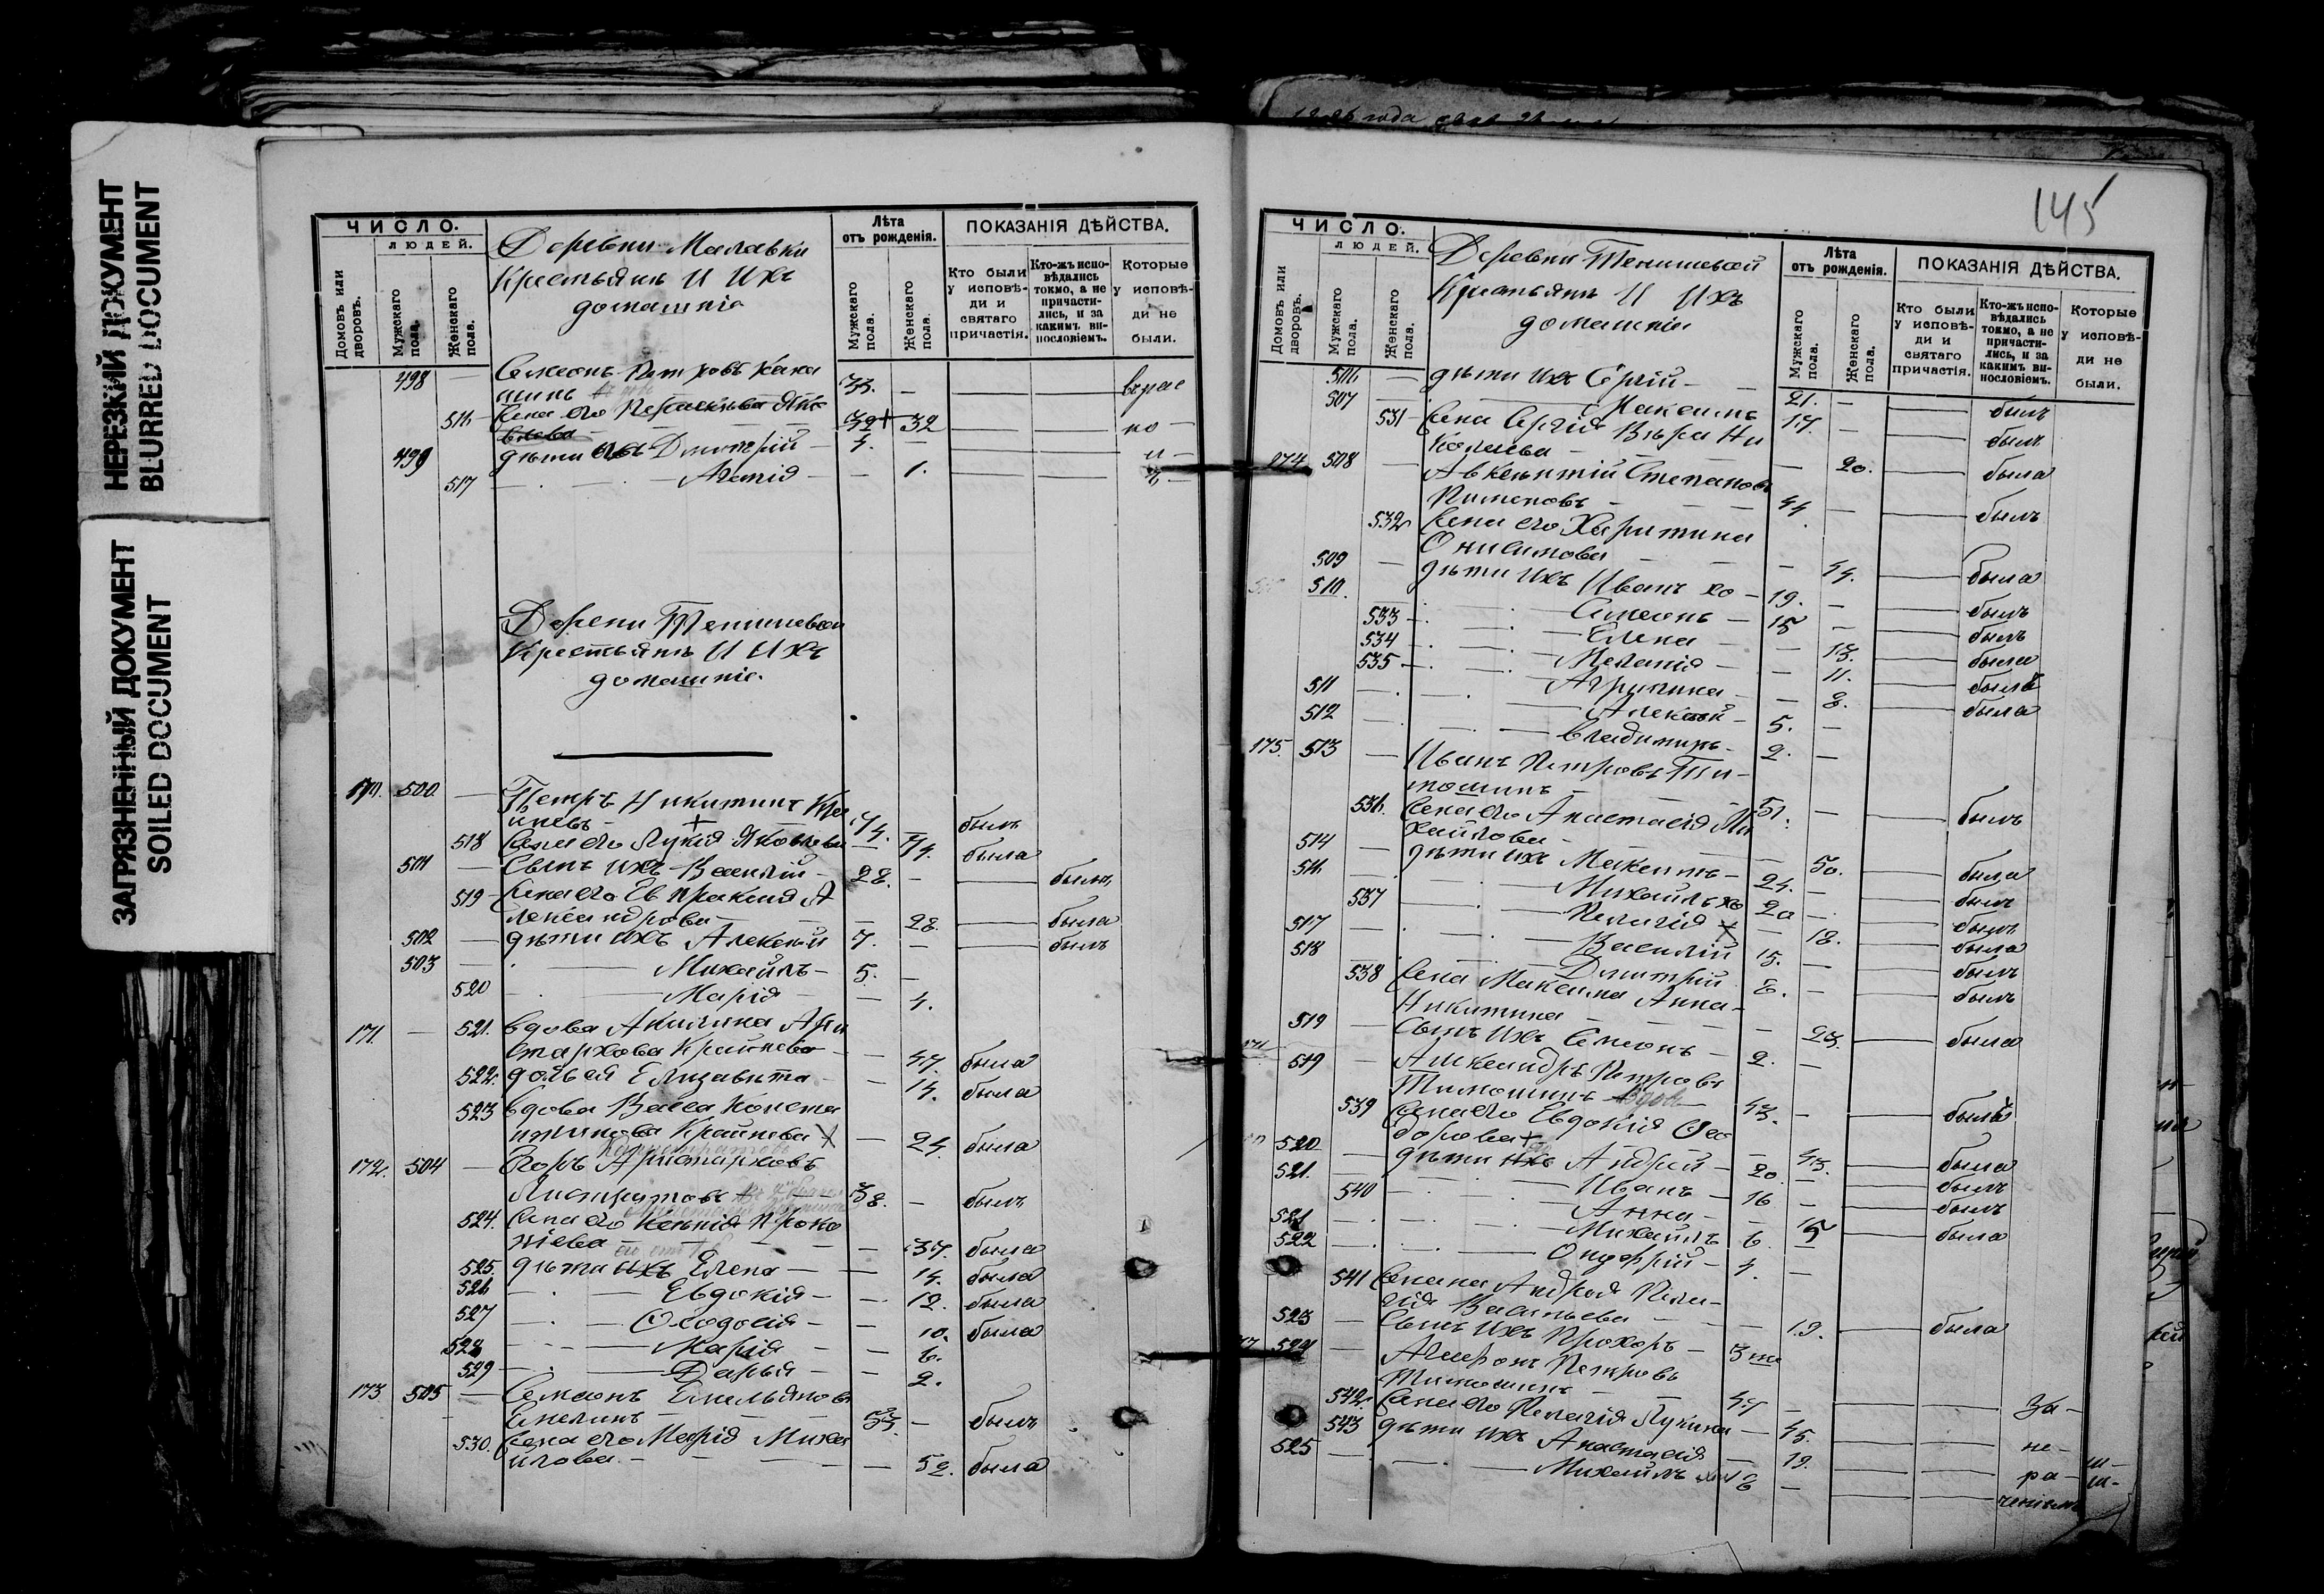 НЕРЕЗКИЙ ДОКУМЕНТ
BLURRED DOCUMENT
ЗАГРЯЗНЕННЫЙ ДОКУМЕНТ
SOILED DOCUMENT
ЧИСЛО.
ЛЮДЕЙ.
Домовъ или дворовъ.
Мужскаго пола.
Женскаго пола.
Деревни Малавки
Крестьянъ И Ихъ
домашніе
Лѣта отъ рожденія.
Мужскаго пола.
Женскаго пола.
ПОКАЗАНІЯ ДѢЙСТВА.
Кто были у исповѣди и святаго причастія.
Кто-жъ исповѣдались токмо, а не причастились, и за какимъ винословіемъ.
Которые у исповѣди не были.
498 — Симеонъ Петровъ
33. —
516 Жена его Параскева
32
499 дѣти ихъ Димитрій — 4.
517 — Агафія — 1.
Дерени Тенишевой
Крестьянъ И Ихъ
домашніе.
170. 500. — Петръ Никитинъ Край
невъ — 74. былъ
518 Жена его Лукія Яковлева — 74. была
501 — Сынъ ихъ Василій — 28. — былъ
519 Жена его Евпраксія А
лександрова — 28. — была
502 — дѣти ихъ Алексій 7. — былъ
503 — Михаилъ — 5. —
520 — Марія — 4.
171. — 521. вдова Акилина Ари
стархова Крайнева — 47. была
522. дочь ея Елизавета — 14. была
523 вдова Васса Конста
нтинова Крайнева — 24. была
172. 504 — Аристарховъ
38. — былъ
524. Жена его Ксенія Проко
піева — 37. была
525. дѣти ихъ Елена — 14. была
526 — Евдокія — 12. была
527 — Ѳеодосія — 10. была
528 — Марія — 6.
529 — Дарья — 2.
173. 505 — Симеонъ Емельяновъ
53. — былъ
530. Жена его Марія Миха
илова — 52. была
145
ЧИСЛО.
ЛЮДЕЙ.
Домовъ или дворовъ.
Мужскаго пола.
Женскаго пола.
Деревни Тенишевой
Крестьянъ И Ихъ
домашніе
Лѣта отъ рожденія.
Мужскаго пола.
Женскаго пола.
ПОКАЗАНІЯ ДѢЙСТВА.
Кто были у исповѣди и святаго причастія.
Кто-жъ исповѣдались токмо, а не причастились, и за какимъ винословіемъ.
Которые у исповѣди не были.
506 — дѣти ихъ Сергій — 21. — былъ
507 — Максимъ 17. — былъ
531 Жена Сергія Вѣра Ни
колаева — 20. — была
174 508 — Авксентій Степановъ
Пименовъ — 44 — былъ
532 Жена его Харитина
Онисимова — 44. — была
509 — дѣти ихъ Иванъ хо — 19. — былъ
510. — Симеонъ — 15 — былъ
533 — Елена — 13. — была
534 — Меланія — 11. — была
535 — Агрипина — 8. — была
511 — Алексій — 5. —
512 — Владимиръ — 2. —
175. 513 — Иванъ Петровъ Ти
мошинъ — 51. — былъ
536. Жена его Анастасія Ми
хайлова — 50. — была
514 — дѣти ихъ Максимъ — 24. — былъ
516. — Михаилъ хо 20 — былъ
537 — Пелагія — 18. — была
517 — Василій 15. — былъ
518 — Димитрій 8. — былъ
538 Жена Максима Анна
Никитина — 23. — была
519 — Сынъ ихъ Симеонъ — 2. —
519 — Александръ Петровъ
Тимошинъ — 43. — былъ
539 Жена его Евдокія Ѳео
дорова — 43. — была
520 — дѣти ихъ Андрей — 20 — былъ
521. — Иванъ — 16 — былъ
540 — Анна — 15 — была
521 — Михаилъ 6. —
522 — Онуфрій — 4. —
541 Жена Андрея Пела
гія Васильева — 19. — была
523 — Сынъ ихъ Прохоръ —
524 — Петровъ
Тимошинъ — 47 — За-
542. Жена его Пелагія Лукина — 45. — не-
543 дѣти ихъ Анастасія — 19. — ра-
525 — Михаилъ — ченіемъ